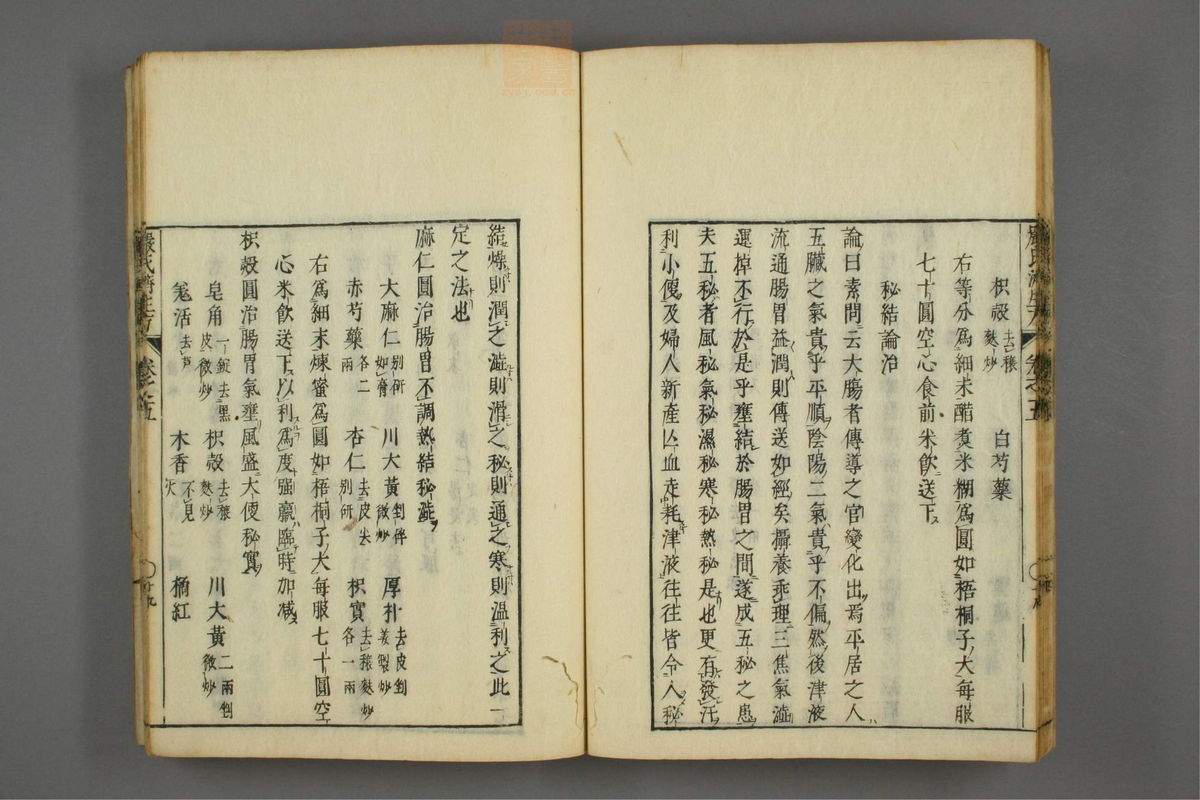 枳殼去穰麩炒 白芍藥
右等分爲細末醋煑米糊爲圓如梧桐子大每服
七十圓空心食前米飲送下
秘結論治
論曰素問云大腸者傳導之官變化出焉平居之人
五臟之氣貴乎平順陰陽二氣貴乎不偏然後津液
流通腸胃益潤則傳送如經矣攝養乖理三焦氣澁
運掉不行於是乎壅結於腸胃之間遂成五秘之患
夫五秘者風秘氣秘濕秘寒秘熱秘是也更有發汗
利小便及婦人新產亾血走耗津液往往皆令人秘
結燥則潤之澁則滑之秘則通之寒則温利之此一
定之法也
麻仁圓治腸胃不調熱結秘澁
大麻仁别研如膏 川大黃剉碎微炒 厚朴去皮剉姜製炒
赤芍藥各二兩 杏仁去皮尖别研 枳實去穰麩炒各一兩
右爲細末煉蜜爲圓如梧桐子大每服七十圓空
心米飲送下以利爲度強羸臨時加减
枳殼圓治腸胃氣壅風盛大便秘實
皂角一錠去黑皮微炒 枳殼去穰麩炒 川大黃二兩剉微炒
羗活去芦 木香不見火 橘紅
嚴氏濟生方 卷之五 廿九